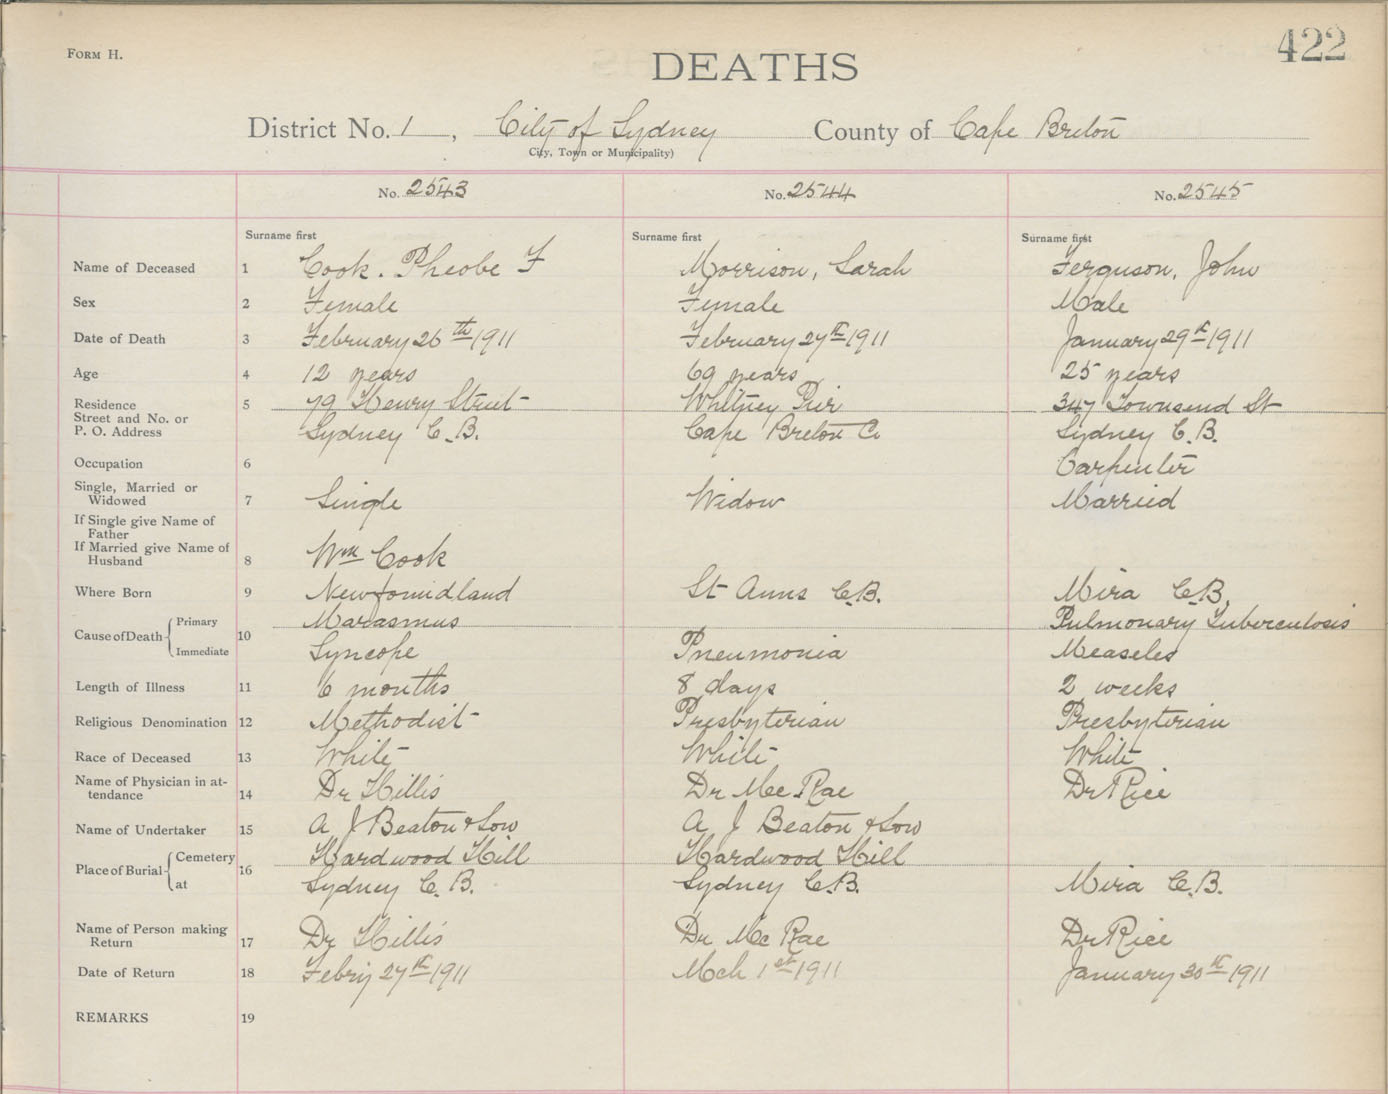 FORM H.
422
DEATHS
District No. 1, City of Sydney County of Cape Breton
City, Town or Municipality)
No. 2543 No. 2544 No. 2545
Surname first Surname first Surname first
Name of Deceased 1 Cook. Pheobe F Morrison, Sarah Ferguson, John
Sex 2 Female Female Male
Date of Death 3 February 26th 1911 February 27th 1911 January 29th 1911
Age 4 12 years 69 years 25 years
Residence 5 79 Henry Street Whitney Pier 347 Townsend St
Street and No. or
P. O. Address Sydney C.B. Cape Breton Co Sydney C.B.
Occupation 6 Carpenter
Single, Married or
Widowed 7 Single Widow Married
If Single give Name of
Father
If Married give Name of
Husband 8 Wm Cook
Where Born 9 Newfoundland St Anns C.B. Mira C.B.
Cause of Death Primary 10 Marasmus Pulmonary Tuberculosis
Immediate Syncope Pneumonia Measeles
Length of Illness 11 6 months 8 days 2 weeks
Religious Denomination 12 Methodist Presbyterian Presbyterian
Race of Deceased 13 White White White
Name of Physician in at-
tendance 14 Dr Hillis Dr McRae Dr Rice
Name of Undertaker 15 A J Beaton & Son A J Beaton & Son
Place of Burial Cemetery 16 Hardwood Hill Hardwood Hill
at Sydney C.B. Sydney C.B. Mira C.B.
Name of Person making
Return 17 Dr Hillis Dr McRae Dr Rice
Date of Return 18 Febry 27th 1911 Mch 1st 1911 January 30th 1911
REMARKS 19